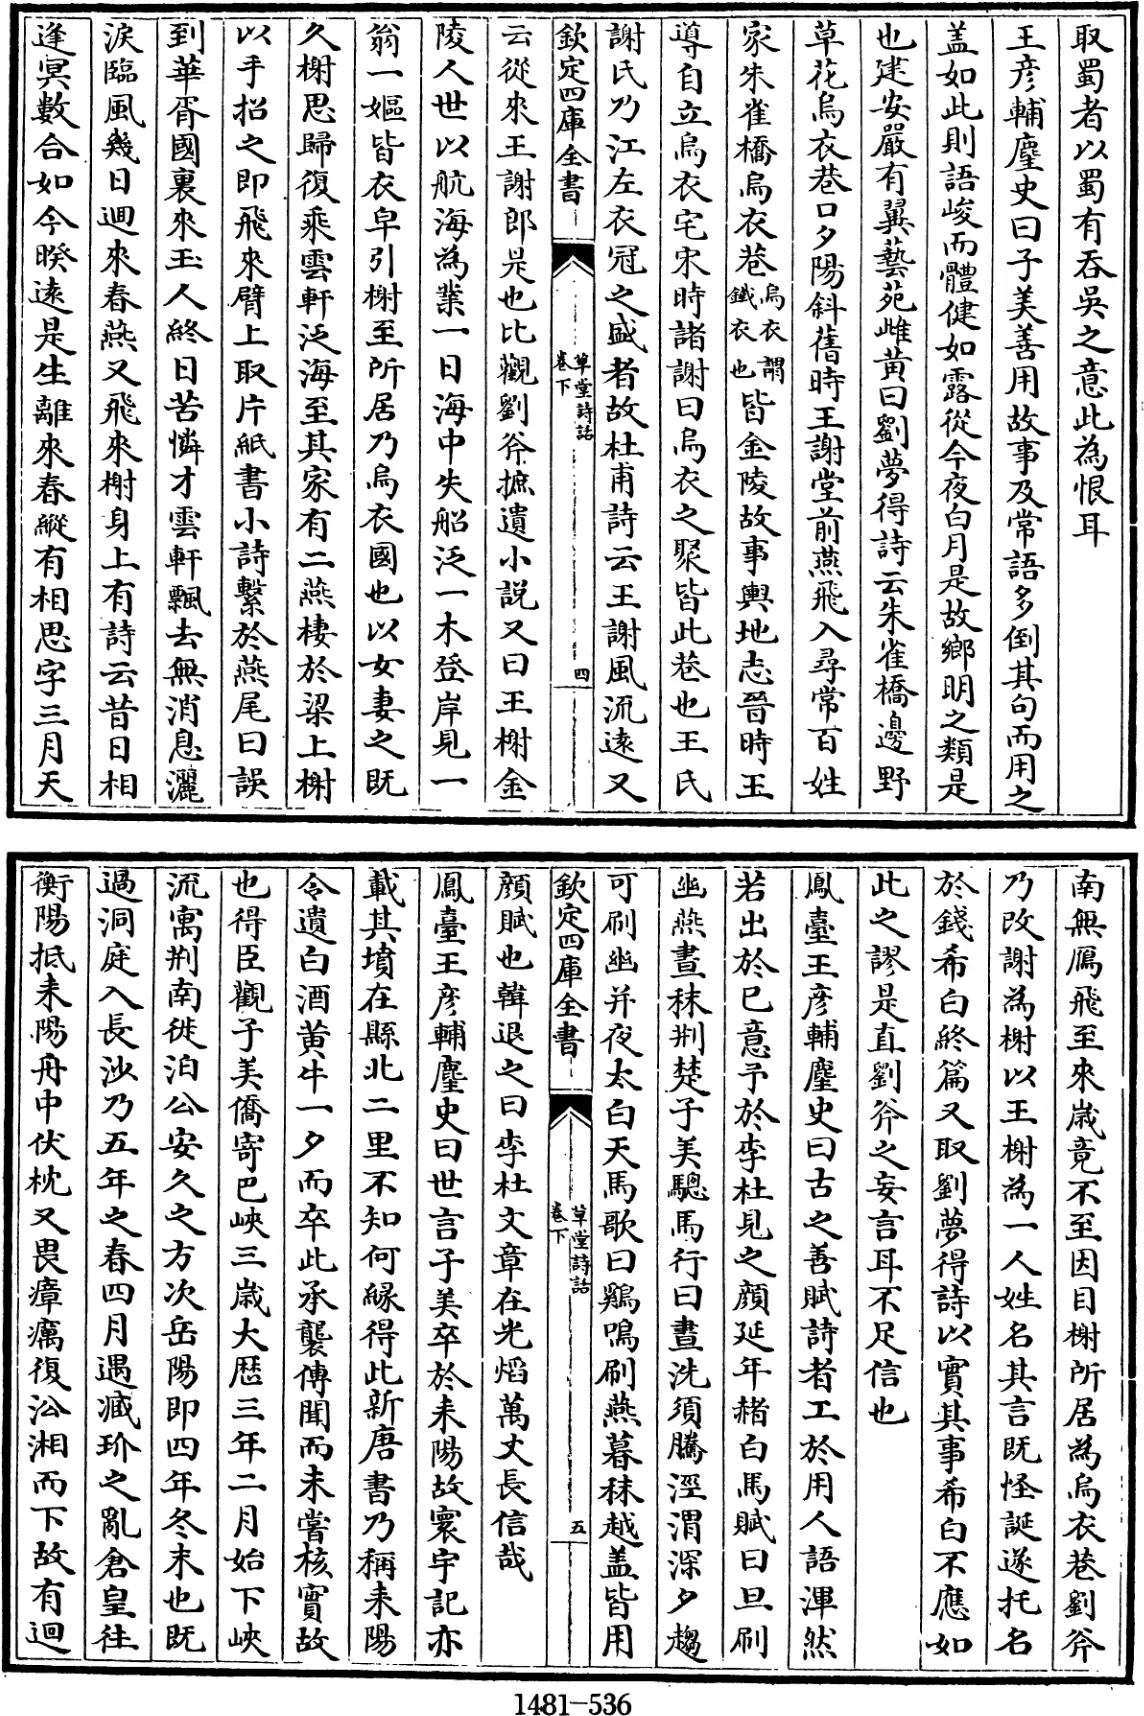 取蜀者以蜀有吞吳之意此為恨耳
王彦輔麈史曰子美善用故事及常語多倒其句而用之
盖如此則語峻而體健如露從今夜白月是故鄉明之類是
也建安嚴有翼藝苑雌黄曰劉夢得詩云朱雀橋邊野
草花烏衣巷口夕陽斜舊時王謝堂前燕飛入尋常百姓
家朱雀橋烏衣巷烏衣謂鐵衣也皆金陵故事輿地志晉時王
導自立烏衣宅宋時諸謝曰烏衣之聚皆此巷也王氏
謝氏乃江左衣冠之盛者故杜甫詩云王謝風流遠又
欽定四庫全書
草堂詩話
卷下
四
云從來王謝郎是也比觀劉斧摭遺小説又曰王榭金
陵人世以航海為業一日海中失船泛一木登岸見一
翁一嫗皆衣皁引榭至所居乃烏衣國也以女妻之既
久榭思歸復乘雲軒泛海至其家有二燕棲於梁上榭
以手招之即飛來臂上取片紙書小詩繫於燕尾曰誤
到華胥國裏來玉人終日苦憐才雲軒飄去無消息灑
淚臨風幾日迴來春燕又飛來榭身上有詩云昔日相
逢冥數合如今暌遠是生離來春縱有相思字三月天
南無鴈飛至來歲竟不至因目榭所居為烏衣巷劉斧
乃改謝為榭以王榭為一人姓名其言既怪誕遂托名
於錢希白終篇又取劉夢得詩以實其事希白不應如
此之謬是直劉斧之妄言耳不足信也
鳳臺王彦輔麈史曰古之善賦詩者工於用人語渾然
若出於已意予於李杜見之顔延年赭白馬賦曰旦刷
幽燕晝秣荆楚子美驄馬行曰晝洗須騰涇渭深夕趨
可刷幽并夜太白天馬歌曰鷄鳴刷燕暮秣越盖皆用
欽定四庫全書
草堂詩話
卷下
五
顔賦也韓退之曰李杜文章在光焰萬丈長信哉
鳳臺王彦輔麈史曰世言子美卒於耒陽故寰宇記亦
載其墳在縣北二里不知何縁得此新唐書乃稱耒陽
令遺白酒黄牛一夕而卒此承襲傳聞而未嘗核實故
也得臣觀子美僑寄巴峽三歲大厯三年二月始下峽
流寓荆南徙泊公安久之方次岳陽即四年冬末也既
過洞庭入長沙乃五年之春四月遇臧玠之亂倉皇往
衡陽抵耒陽舟中伏枕又畏瘴癘復沿湘而下故有迴
1481-536